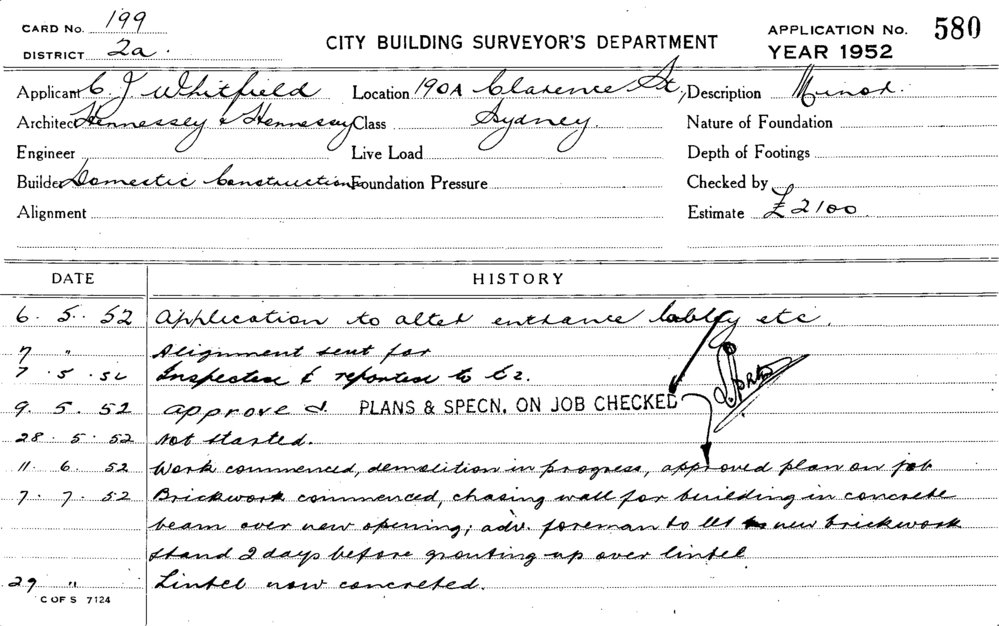 CARD No. 199
DISTRICT 2a.
CITY BUILDING SURVEYOR'S DEPARTMENT
APPLICATION No. 580
YEAR 1952
Applicant C. J. Whitfield Location 190A Clarence St, Description Minor.
Architect Hennessey & Hennessey Class Sydney. Nature of Foundation
Engineer Live Load Depth of Footings
Builder Domestic Constructions Foundation Pressure Checked by
Alignment Estimate £2100.
DATE HISTORY
6. 5. 52 Application to alter entrance lobby etc.
7 " Alignment sent for
7. 5. 52 Inspected & reported to
9. 5. 52 Approved. PLANS & SPECN. ON JOB CHECKED
28. 5. 52 Not started.
11. 6. 52 Work commenced, demolition in progress, approved plan on job
7. 7. 52 Brickwork commenced, chasing wall for building in concrete
beam over new opening; adv. foreman to let new brickwork
stand 2 days before grouting up over lintel
29 " Lintel now concreted.
C OF S 7124